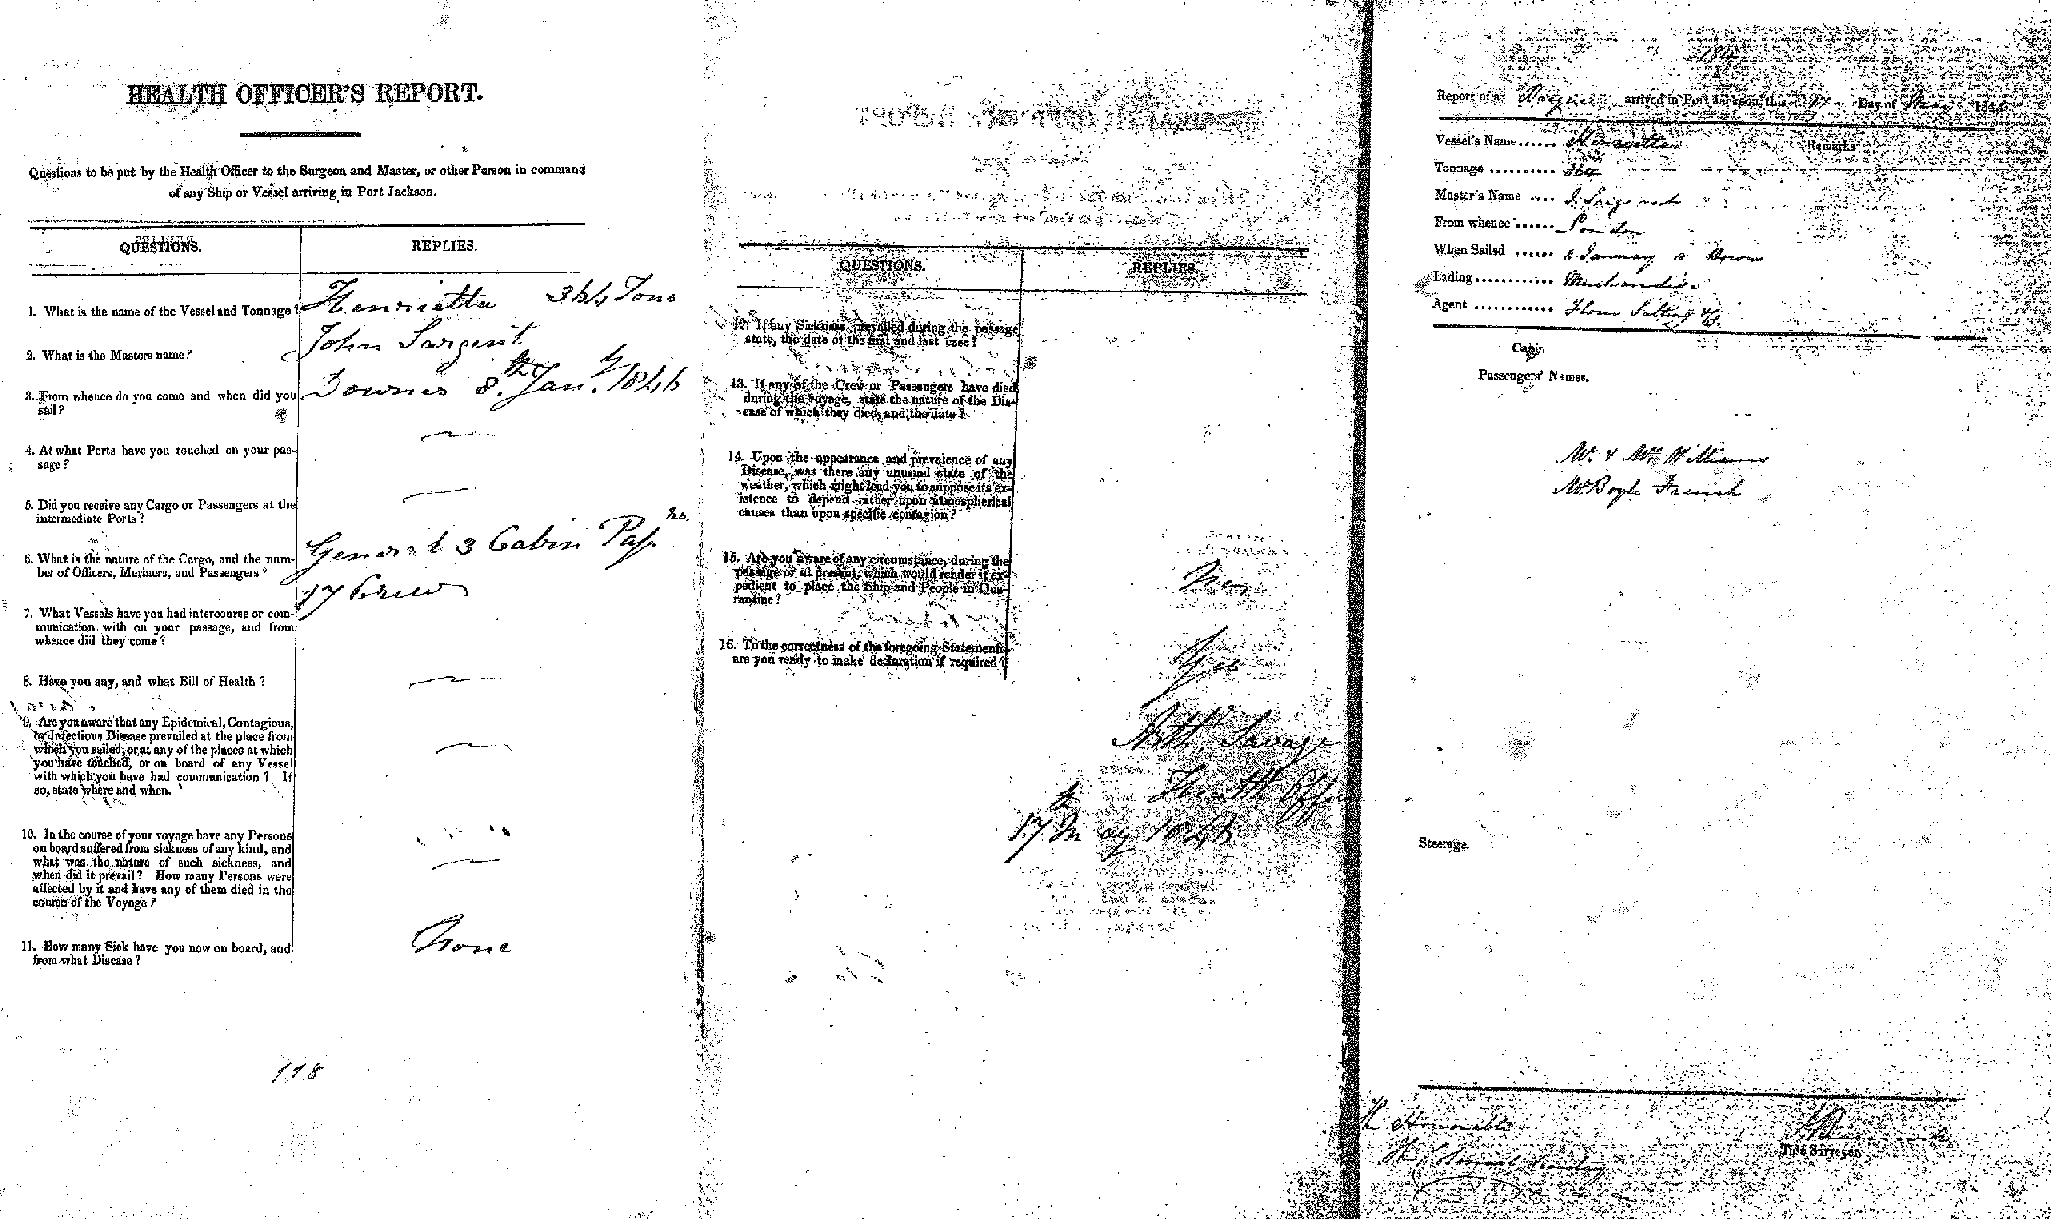 HEALTH OFFICER'S REPORT.
Questions to be put by the Health Officer to the Surgeon and Master, or other Person in command
of any Ship or Vessel arriving in Port Jackson.
QUESTIONS. REPLIES.
1. What is the name of the Vessel and Tonnage? Henrietta 344 Tons
2. What is the Masters name? John Sargent
3. From whence do you come and when did you
sail? Downs 8th Jany. 1846
4. At what Ports have you touched on your pas-
sage?
5. Did you receive any Cargo or Passengers at the
intermediate Ports?
6. What is the nature of the Cargo, and the num-
ber of Officers, Mariners, and Passengers? General 3 Cabin
17 Crew
7. What Vessels have you had intercourse or com-
munication with on your passage, and from
whence did they come?
8. Have you any, and what Bill of Health?
9. Are you aware that any Epidemical, Contagious,
or Infectious Disease prevailed at the place from
which you sailed, or at any of the places at which
you have touched, or on board of any Vessel
with which you have had communication? If
so, state where and when.
10. In the course of your voyage have any Persons
on board suffered from sickness of any kind, and
what was the nature of such sickness, and
when did it prevail? How many Persons were
affected by it and have any of them died in the
course of the Voyage?
11. How many Sick have you now on board, and
from what Disease? None
118
QUESTIONS. REPLIES.
12. If any Sickness prevailed during the passage
state, the date of the first and last cases?
13. If any of the Crew or Passengers have died
during the voyage, state the nature of the Dis-
ease of which they died, and the date?
14. Upon the appearance and prevalence of any
Disease, was there any unusual state of the
weather, which might lead you to suppose its ex-
istence to depend rather upon atmospherical
causes than upon specific contagion?
15. Are you aware of any circumstance, during the
passage or at present, which would render it ex-
pedient to place the Ship and People in Qua-
rantine? None
16. To the correctness of the foregoing Statements
are you ready to make declaration if required? Yes
Arth. Savage
17th May 1846
Report of a arrived in Port Jackson, this 17 Day of May 184
Vessel's Name ...... Henrietta Remarks
Tonnage .......... 344
Master's Name .... J. Sargent
From whence ...... London
When Sailed ...... 8 January a Downs
Lading ............ Merchandise
Agent ............
Cabin
Passengers' Names.
Mr. & Mrs Williams
Mr Boyle French
Steerage.
Tide Surveyor